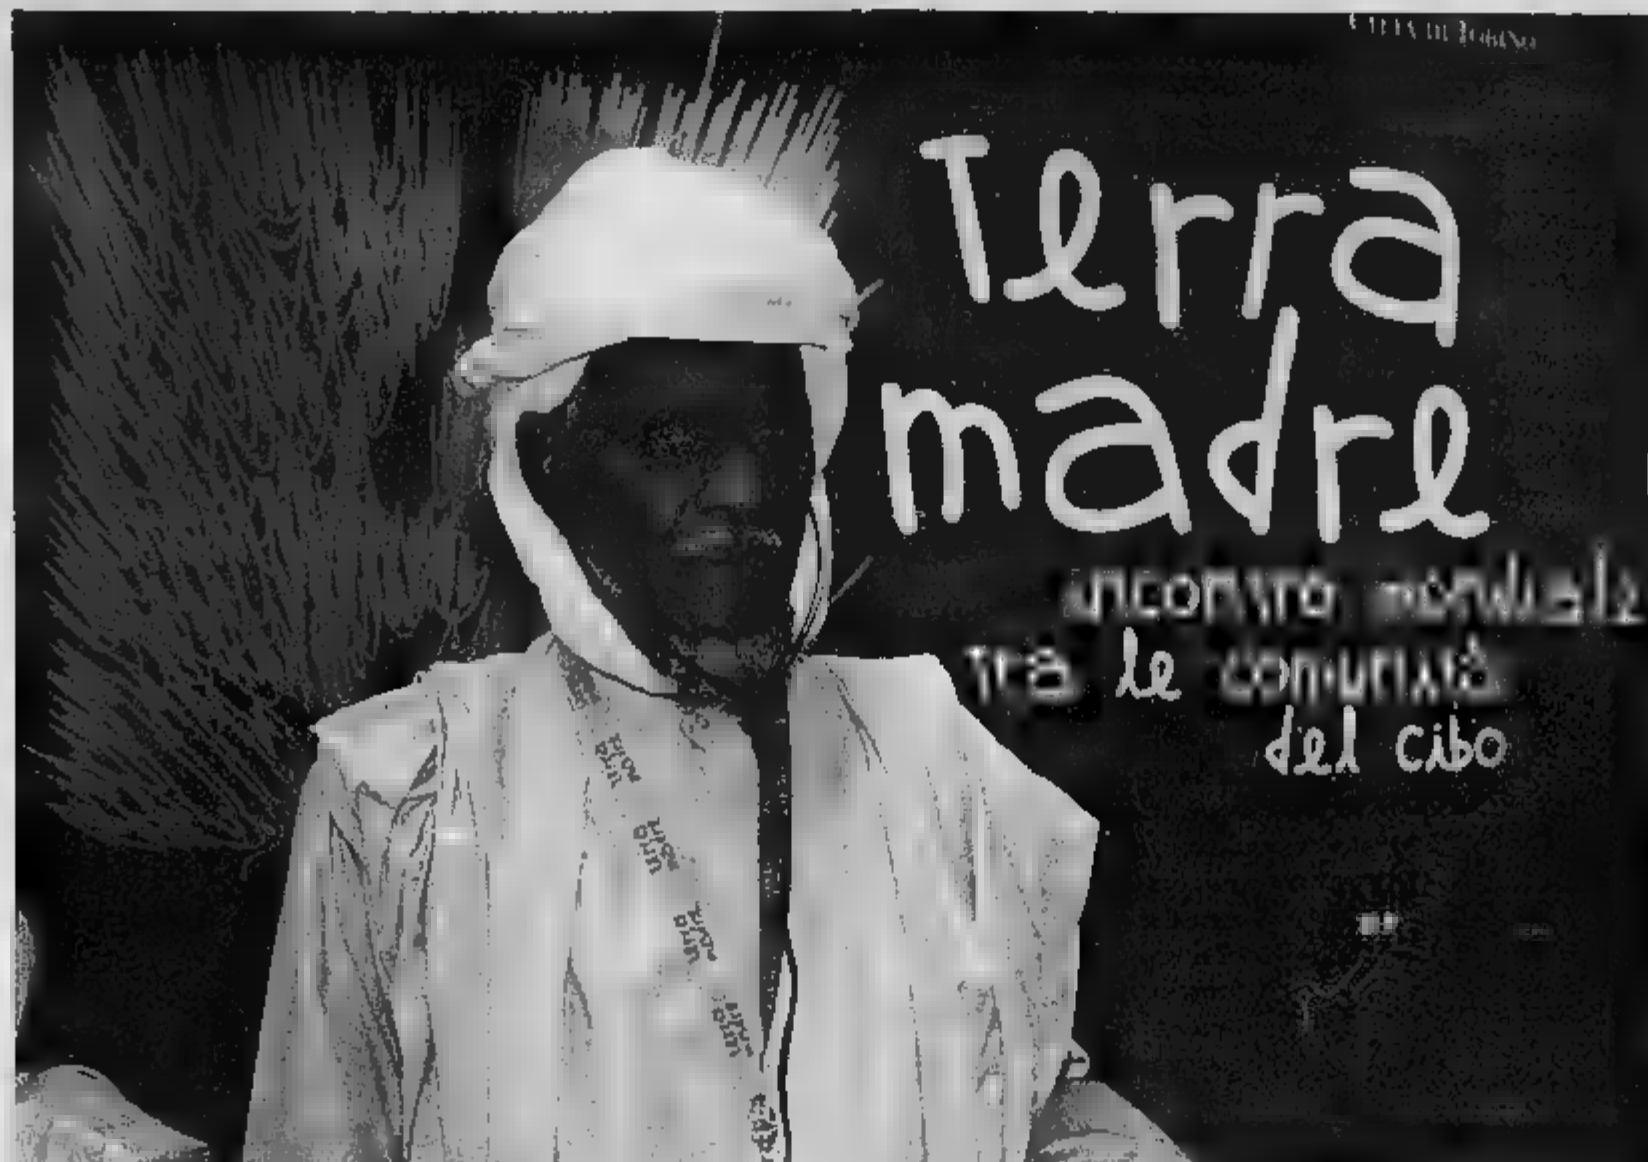 Terra
madre
incontro mondiale
tra le comunità
del cibo